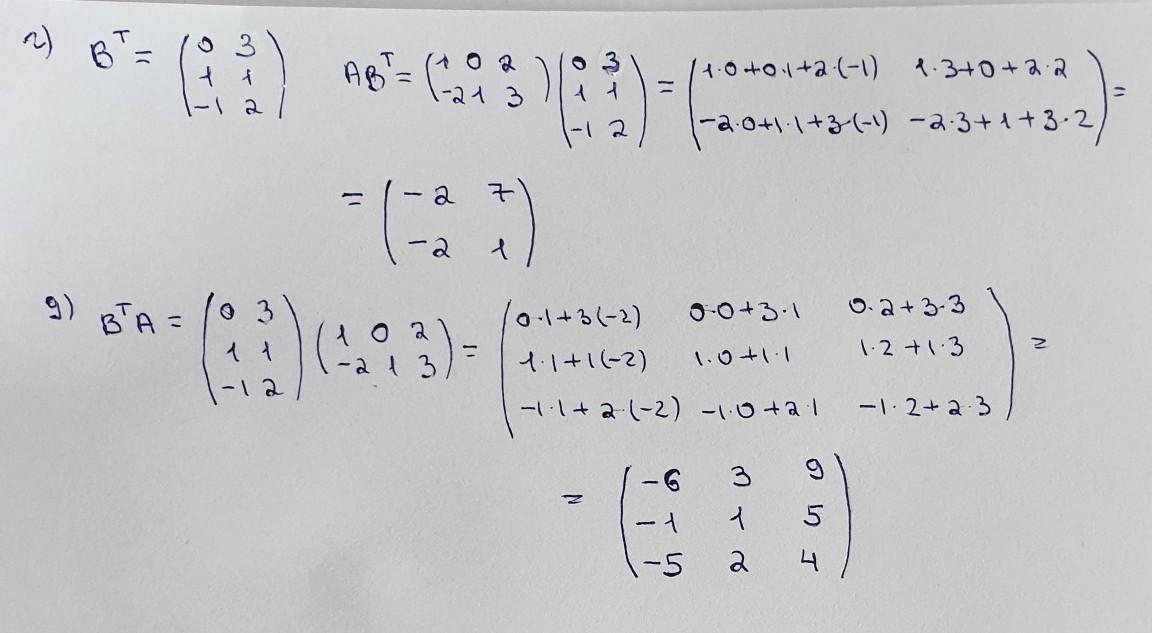 г) B^T = (0 3; 1 1; -1 2) AB^T = (1 0 2; -2 1 3)(0 3; 1 1; -1 2) = (1·0+0·1+2·(-1) 1·3+0+2·2; -2·0+1·1+3·(-1) -2·3+1+3·2) =
= (-2 7; -2 1)
g) B^T A = (0 3; 1 1; -1 2)(1 0 2; -2 1 3) = (0·1+3(-2) 0·0+3·1 0·2+3·3; 1·1+1(-2) 1·0+1·1 1·2+1·3; -1·1+2·(-2) -1·0+2·1 -1·2+2·3) =
= (-6 3 9; -1 1 5; -5 2 4)